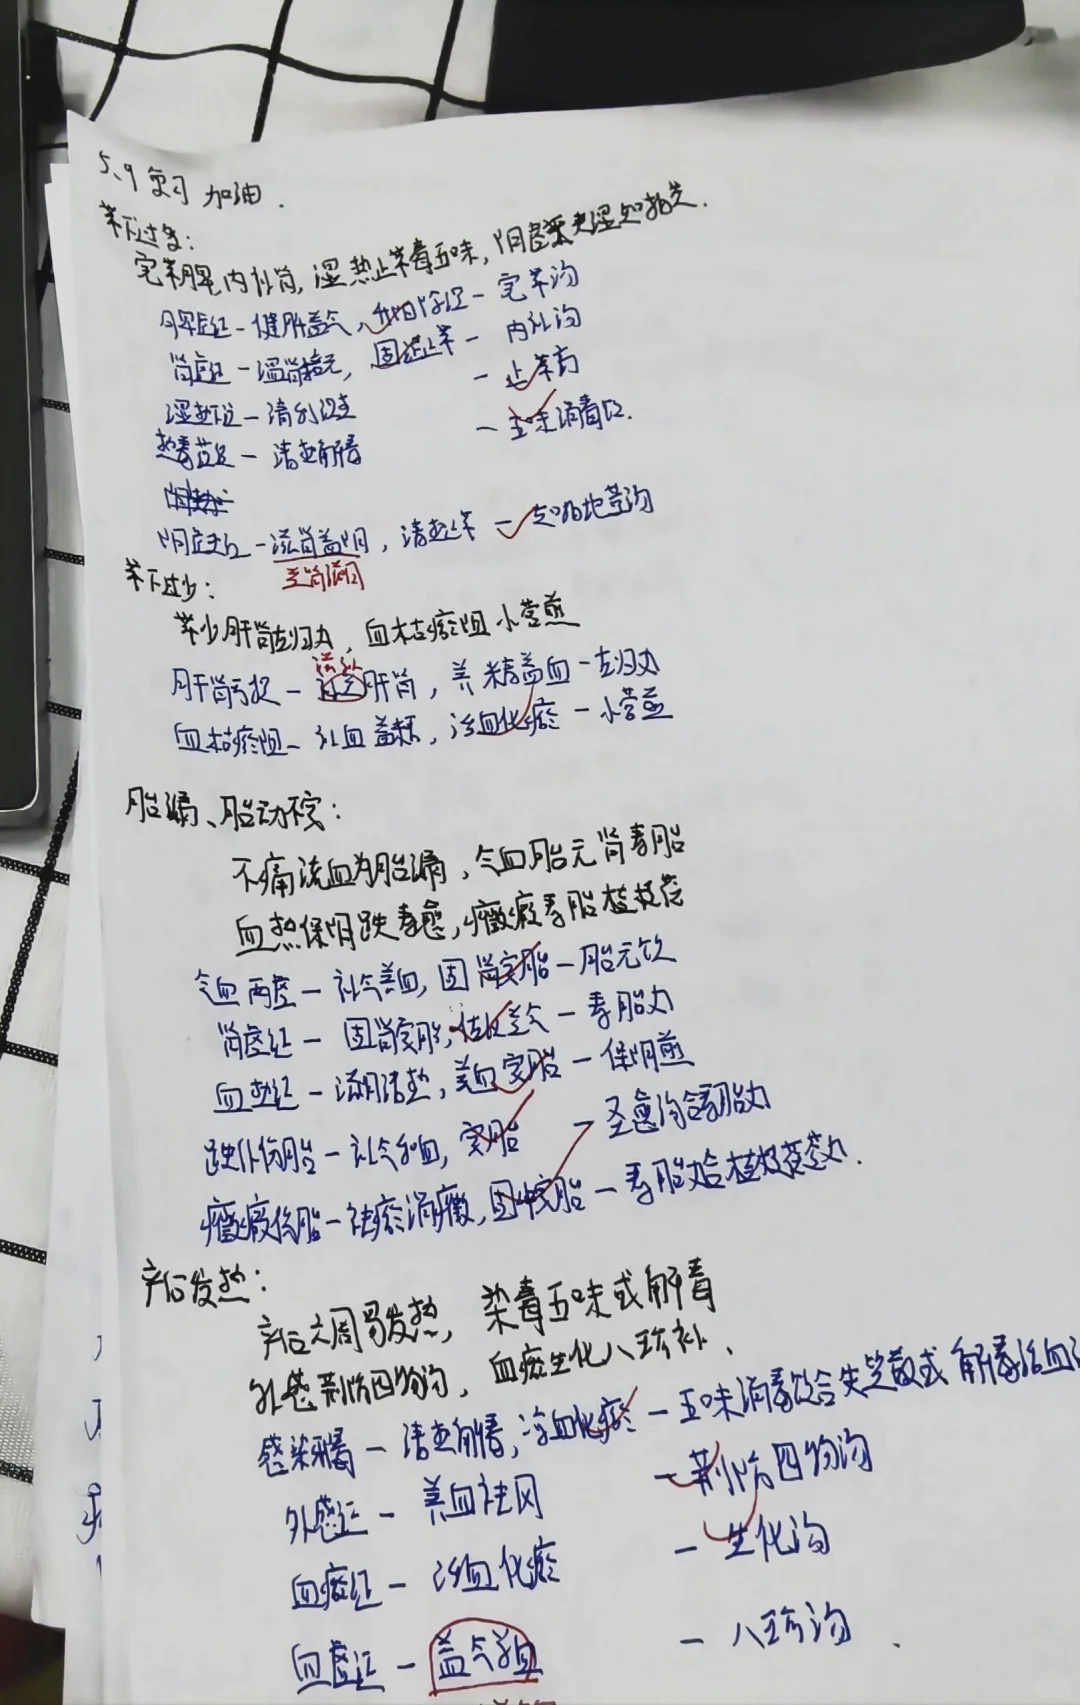 5.9 复习 加油.
带下过多:
完带脾,内补肾,湿热止带毒五味,阴虚夹湿知柏先.
脾虚证-健脾益气,升阳除湿-完带汤
肾虚证-温肾培元,固涩止带-内补汤
湿热证-清利湿热 -止带方
热毒证-清热解毒 -五味消毒饮.
阴虚夹湿-滋肾益阴,清热止带-知柏地黄汤
至肾滋阴
带下过少:
带少肝肾左归丸,血枯瘀阻小营煎
滋补
肝肾亏损-肝肾,养精益血-左归丸
血枯瘀阻-补血益精,活血化瘀-小营煎
胎漏、胎动不安:
不痛流血为胎漏,气血胎元肾寿胎
血热保阴跌寿愈,癥瘕寿胎桂枝茯
气血两虚-补气养血,固肾安胎-胎元饮
肾虚证-固肾安胎,佐以益气-寿胎丸
血热证-滋阴清热,养血安胎-保阴煎
跌仆伤胎-补气和血,安胎 -圣愈汤合寿胎丸
癥瘕伤胎-祛瘀消癥,固冲安胎-寿胎丸合桂枝茯苓丸.
产后发热:
产后六周易发热,染毒五味或解毒
外感荆防四物汤,血瘀生化八珍补.
感染邪毒-清热解毒,凉血化瘀-五味消毒饮合失笑散或解毒活血
外感证-养血祛风 -荆防四物汤
血瘀证-活血化瘀 -生化汤
血虚证-益气养血 -八珍汤.